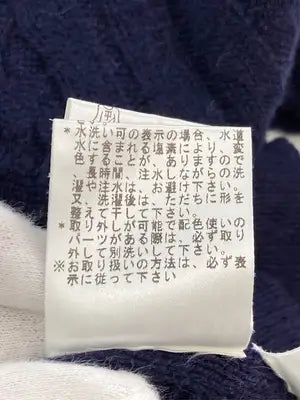 *水洗い可の表示の場合、水道
水に含まれる塩素により、変
色することが、ありますので
、長時間、注水しながらの洗
濯や注水は、お避け下さい。
又、洗濯後は、ただちに形を
整えて干して下さい。
*取り外しが可能で配色使いの
パーツがある際は、必ず取り
外して別洗いして下さい。
※お取り扱いの方法は、必ず表
示に従って下さい